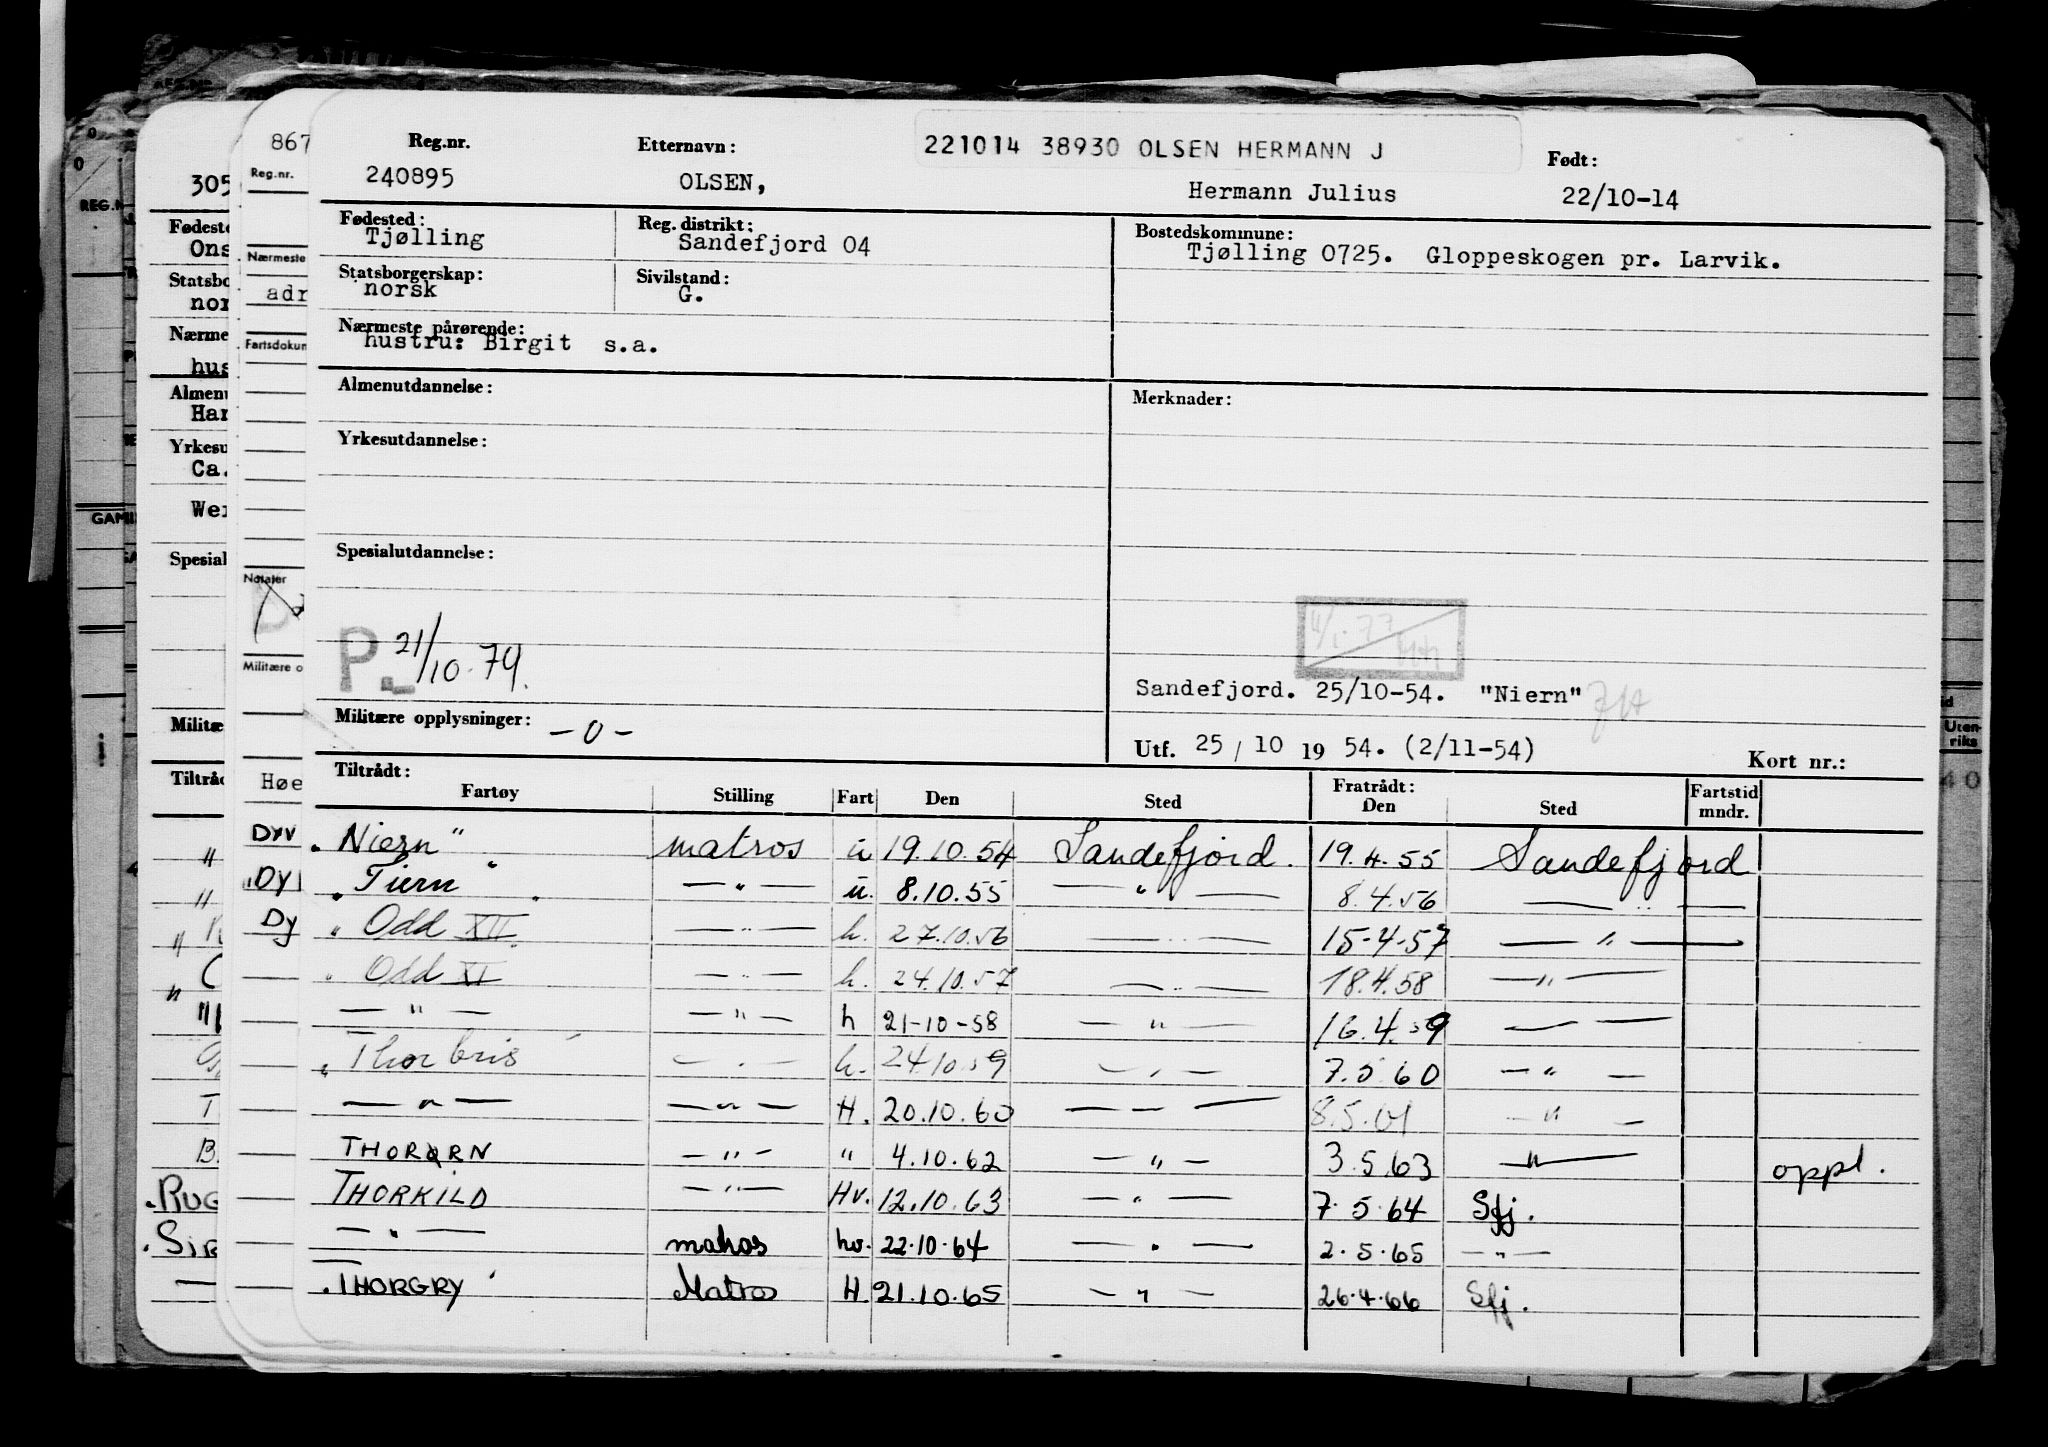 Reg.nr. Etternavn: 221014 38930 OLSEN HERMANN J Født:
240895 OLSEN, Hermann Julius 22/10-14
Fødested: Reg. distrikt: Bostedskommune:
Tjølling Sandefjord 04 Tjølling 0725. Gloppeskogen pr. Larvik.
Statsborgerskap: Sivilstand:
norsk G.
Nærmeste pårørende:
hustru: Birgit s.a.
Almenutdannelse: Merknader:
Yrkesutdannelse:
Spesialutdannelse:
P. 21/10.79.
Sandefjord. 25/10-54. "Niern"
Militære opplysninger: -0-
Utf. 25/10 1954. (2/11-54) Kort nr.:
Tiltrådt: Fratrådt:
Fartøy Stilling Fart Den Sted Den Sted Fartstid mndr.
"Niern" matros u 19.10.54 Sandefjord. 19.4.55 Sandefjord
"Tiern" —"— u. 8.10.55 —"— 8.4.56 —"—
" Odd XII —"— h. 27.10.56 —"— 15-4-57 —"—
" Odd XI —"— h. 24.10.57 —"— 18.4.58 —"—
—"— —"— h 21-10-58 —"— 16.4.59 —"—
"Thorbris —"— h. 24.10.59 —"— 7.5.60 —"—
—"— —"— H. 20.10.60 —"— 8.5.61 —"—
THORØRN —"— " 4.10.62 —"— 3.5.63 —"— oppl.
THORKILD —"— Hv. 12.10.63 —"— 7.5.64 Sfj.
—"— matros hv. 22.10.64 —"— 2.5.65 —"—
THORGRY Matros H. 21.10.65 —"— 26.4.66 Sfj.
867
Reg.nr.
Nærmeste
adr
Fartsdokum
Notater
Militære o
Høe
DYV
DY
Dy
305
Fødeste
Ons
Statsbo
nor
Nærme
hus
Almenu
Har
Yrkesu
Ca.
Wer
Spesial
Militæ
Tiltråd
T
B.
RUG
SIR
REG.N
GAMI
Uten-
riks
40